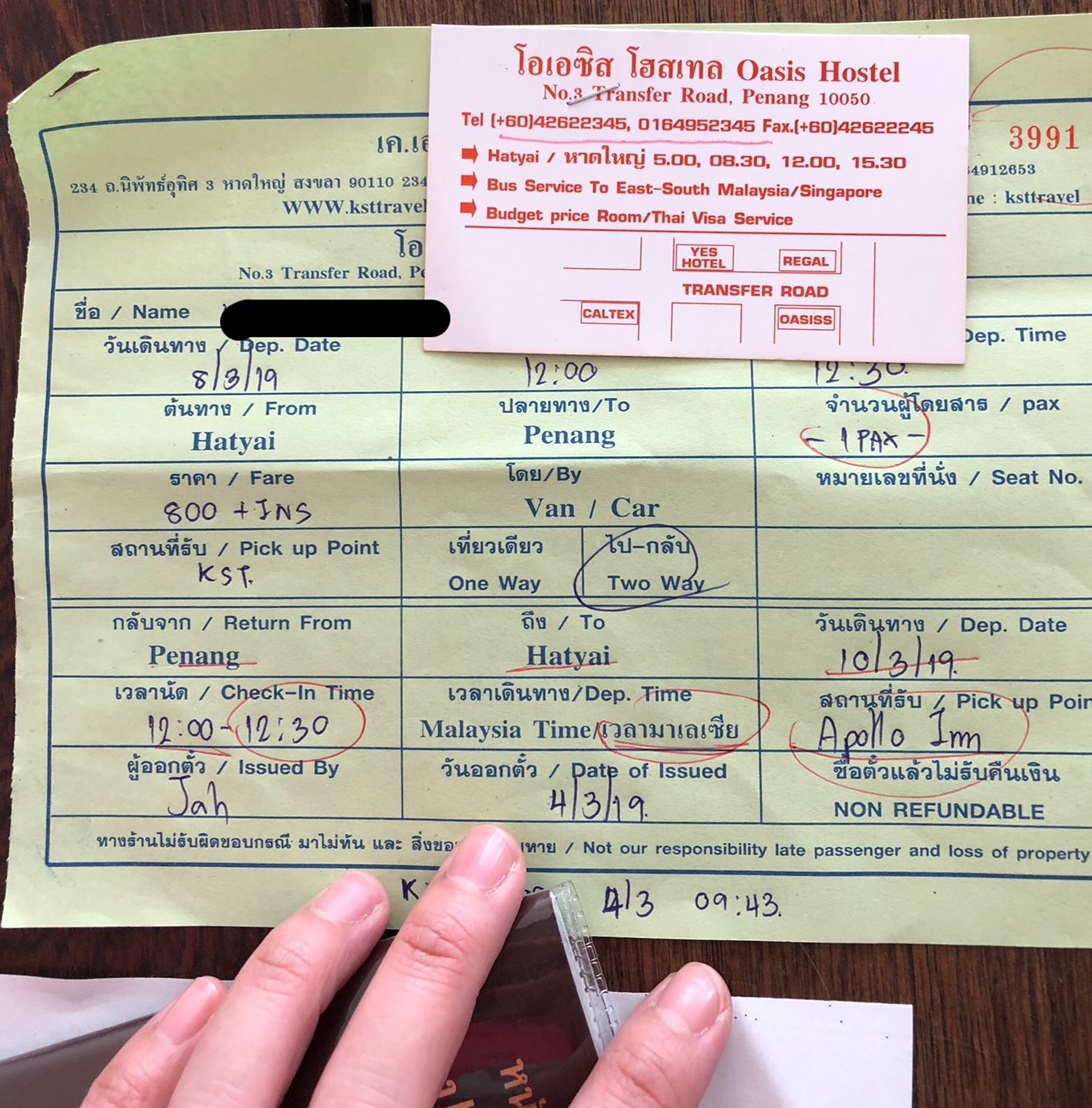 โอเอซิส โฮสเทล Oasis Hostel
No.3 Transfer Road, Penang 10050
Tel (+60)42622345, 0164952345 Fax.(+60)42622245
Hatyai / หาดใหญ่ 5.00, 08.30, 12.00, 15.30
Bus Service To East-South Malaysia/Singapore
Budget price Room/Thai Visa Service
YES HOTEL
REGAL
TRANSFER ROAD
CALTEX
OASISS
3991
เค.เอ
234 ถ.นิพัทธ์อุทิศ 3 หาดใหญ่ สงขลา 90110 234
4912653
WWW.ksttravel
ne : ksttravel
โอ
No.3 Transfer Road, Pe
ชื่อ / Name
วันเดินทาง / Dep. Date
Dep. Time
8/3/19
12:00
12:30
ต้นทาง / From
ปลายทาง/To
จำนวนผู้โดยสาร / pax
Hatyai
Penang
- 1 PAX -
ราคา / Fare
โดย/By
หมายเลขที่นั่ง / Seat No.
800 + INS
Van / Car
สถานที่รับ / Pick up Point
เที่ยวเดียว
ไป-กลับ
KST.
One Way
Two Way
กลับจาก / Return From
ถึง / To
วันเดินทาง / Dep. Date
Penang
Hatyai
10/3/19.
เวลานัด / Check-In Time
เวลาเดินทาง/Dep. Time
สถานที่รับ / Pick up Poin
12:00-12:30
Malaysia Time/เวลามาเลเซีย
Apollo Inn
ผู้ออกตั๋ว / Issued By
วันออกตั๋ว / Date of Issued
ซื้อตั๋วแล้วไม่รับคืนเงิน
Jah
4/3/19.
NON REFUNDABLE
ทางร้านไม่รับผิดชอบกรณี มาไม่ทัน และ สิ่งขอ หาย / Not our responsibility late passenger and loss of property
K
4/3 09:43.
หน